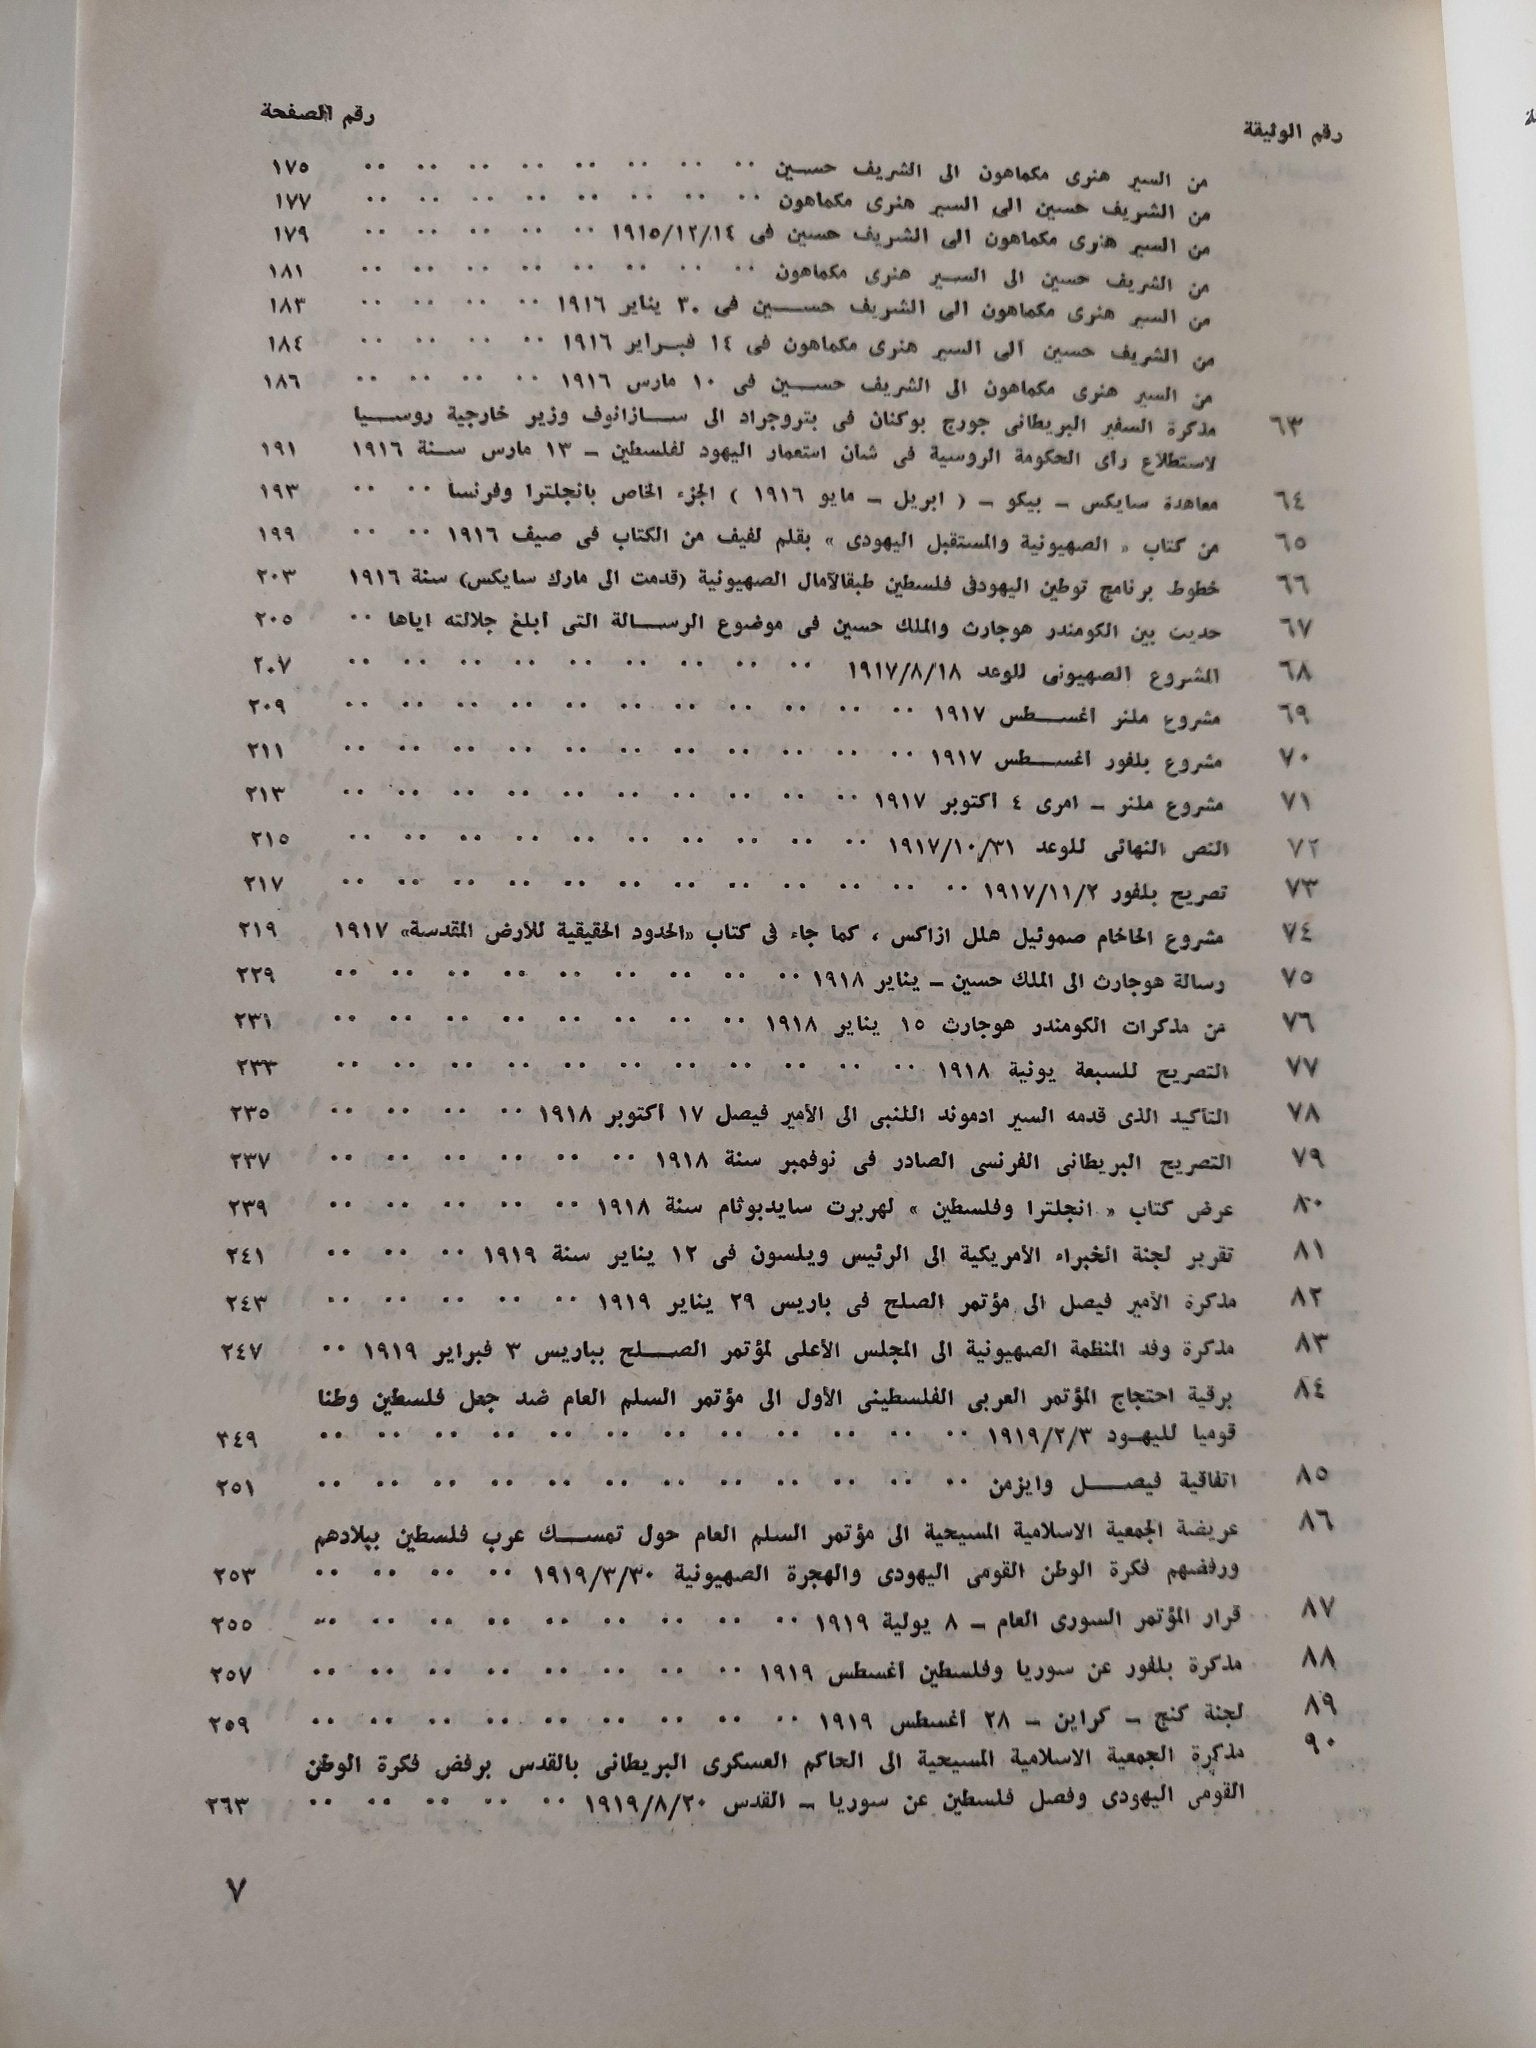 رقم الوثيقة رقم الصفحة
من السير هنرى مكماهون الى الشريف حسين ١٧٥
من الشريف حسين الى السير هنرى مكماهون ١٧٧
من السير هنرى مكماهون الى الشريف حسين فى ١٩١٥/١٢/١٤ ١٧٩
من الشريف حسين الى السير هنرى مكماهون ١٨١
من السير هنرى مكماهون الى الشريف حسين فى ٣٠ يناير ١٩١٦ ١٨٣
من الشريف حسين الى السير هنرى مكماهون فى ١٤ فبراير ١٩١٦ ١٨٤
من السير هنرى مكماهون الى الشريف حسين فى ١٠ مارس ١٩١٦ ١٨٦
٦٣ مذكرة السفير البريطانى جورج بوكنان فى بتروجراد الى سازانوف وزير خارجية روسيا
لاستطلاع رأى الحكومة الروسية فى شأن استعمار اليهود لفلسطين – ١٣ مارس سنة ١٩١٦ ١٩١
٦٤ معاهدة سايكس – بيكو – ( ابريل – مايو ١٩١٦ ) الجزء الخاص بانجلترا وفرنسا ١٩٣
٦٥ من كتاب « الصهيونية والمستقبل اليهودى » بقلم لفيف من الكتاب فى صيف ١٩١٦ ١٩٩
٦٦ خطوط برنامج توطين اليهود فى فلسطين طبقا للآمال الصهيونية (قدمت الى مارك سايكس) سنة ١٩١٦ ٢٠٣
٦٧ حديث بين الكومندر هوجارث والملك حسين فى موضوع الرسالة التى أبلغ جلالته اياها ٢٠٥
٦٨ المشروع الصهيونى للوعد ١٩١٧/٨/١٨ ٢٠٧
٦٩ مشروع ملنر أغسطس ١٩١٧ ٢٠٩
٧٠ مشروع بلفور أغسطس ١٩١٧ ٢١١
٧١ مشروع ملنر – امرى ٤ أكتوبر ١٩١٧ ٢١٣
٧٢ النص النهائى للوعد ١٩١٧/١٠/٣١ ٢١٥
٧٣ تصريح بلفور ١٩١٧/١١/٢ ٢١٧
٧٤ مشروع الحاخام صموئيل هلل ازاكس ، كما جاء فى كتاب «الحدود الحقيقية للأرض المقدسة» ١٩١٧ ٢١٩
٧٥ رسالة هوجارث الى الملك حسين – يناير ١٩١٨ ٢٢٩
٧٦ من مذكرات الكومندر هوجارث ١٥ يناير ١٩١٨ ٢٣١
٧٧ التصريح للسبعة يونية ١٩١٨ ٢٣٣
٧٨ التأكيد الذى قدمه السير ادموند اللنبى الى الأمير فيصل ١٧ أكتوبر ١٩١٨ ٢٣٥
٧٩ التصريح البريطانى الفرنسى الصادر فى نوفمبر سنة ١٩١٨ ٢٣٧
٨٠ عرض كتاب « انجلترا وفلسطين » لهربرت سايدبوثام سنة ١٩١٨ ٢٣٩
٨١ تقرير لجنة الخبراء الأمريكية الى الرئيس ويلسون فى ١٢ يناير سنة ١٩١٩ ٢٤١
٨٢ مذكرة الأمير فيصل الى مؤتمر الصلح فى باريس ٢٩ يناير ١٩١٩ ٢٤٣
٨٣ مذكرة وفد المنظمة الصهيونية الى المجلس الأعلى لمؤتمر الصلح بباريس ٣ فبراير ١٩١٩ ٢٤٧
٨٤ برقية احتجاج المؤتمر العربى الفلسطينى الأول الى مؤتمر السلم العام ضد جعل فلسطين وطنا
قوميا لليهود ١٩١٩/٢/٣ ٢٤٩
٨٥ اتفاقية فيصل وايزمن ٢٥١
٨٦ عريضة الجمعية الاسلامية المسيحية الى مؤتمر السلم العام حول تمسك عرب فلسطين ببلادهم
ورفضهم فكرة الوطن القومى اليهودى والهجرة الصهيونية ١٩١٩/٣/٣٠ ٢٥٣
٨٧ قرار المؤتمر السورى العام – ٨ يولية ١٩١٩ ٢٥٥
٨٨ مذكرة بلفور عن سوريا وفلسطين أغسطس ١٩١٩ ٢٥٧
٨٩ لجنة كنج – كراين – ٢٨ أغسطس ١٩١٩ ٢٥٩
٩٠ مذكرة الجمعية الاسلامية المسيحية الى الحاكم العسكرى البريطانى بالقدس برفض فكرة الوطن
القومى اليهودى وفصل فلسطين عن سوريا – القدس ١٩١٩/٨/٢٠ ٢٦٣
٧